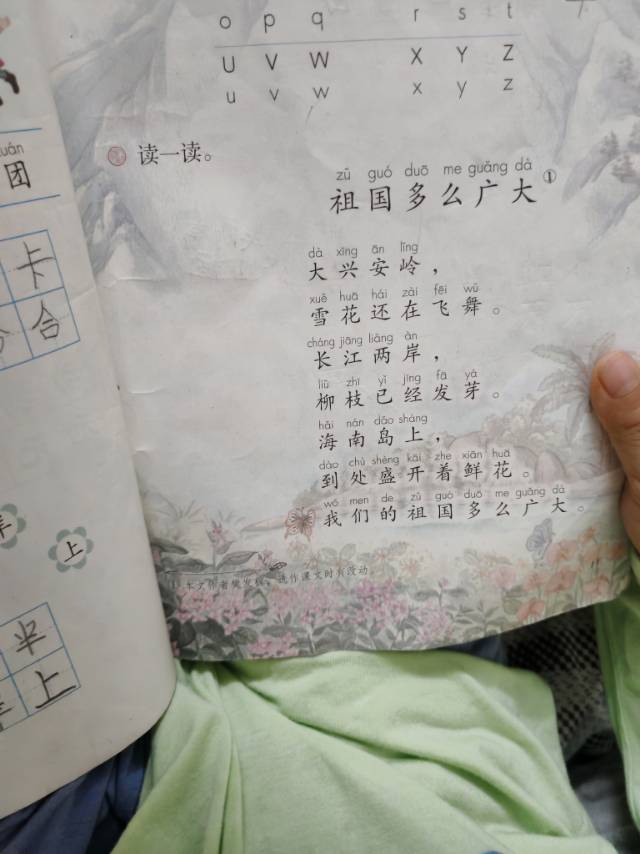 uán
团
卡
合
上
半
上
o p q r s t
U V W X Y Z
u v w x y z
读一读。
zǔ guó duō me guǎng dà
祖国多么广大①
dà xīng ān lǐng
大兴安岭，
xuě huā hái zài fēi wǔ
雪花还在飞舞。
cháng jiāng liǎng àn
长江两岸，
liǔ zhī yǐ jīng fā yá
柳枝已经发芽。
hǎi nán dǎo shàng
海南岛上，
dào chù shèng kāi zhe xiān huā
到处盛开着鲜花。
wǒ men de zǔ guó duō me guǎng dà
我们的祖国多么广大。
本文作者樊发稼，选作课文时有改动